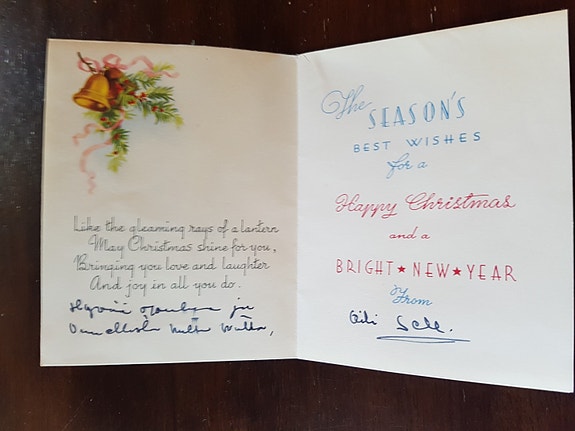 Like the gleaming rays of a lantern
May Christmas shine for you,
Bringing you love and laughter
And joy in all you do.
The
SEASON'S
BEST WISHES
for a
Happy Christmas
and a
BRIGHT ★ NEW ★ YEAR
From